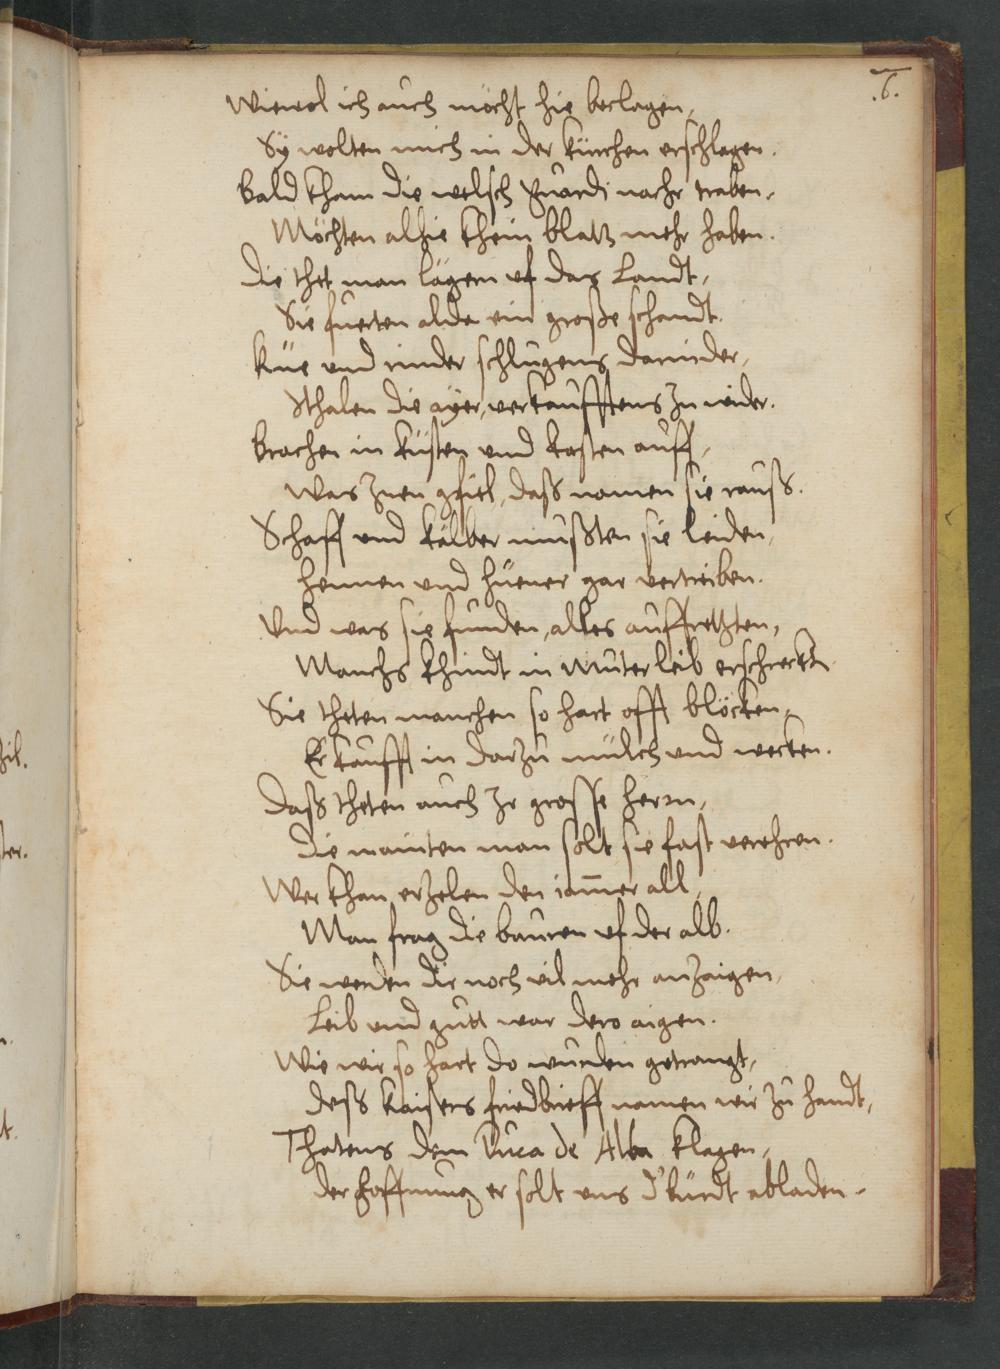 .6.
Wiewol ich auch möcht hie beclagen,
Sÿ wolten mich in der kürchen erschlagen.
Bald kham die welsch guardi nachr traben,
Möchten alhie khein blatz mehr haben.
Die thet man lägern uf das Landt,
Sie fuerten alda ein große schandt.
Küe und rinder schlugens darnider,
Sthalen die aÿer, verkaufftens zu wider.
Brachen in küsten und kasten auff,
Was Inen gfiel, daß namen sie rauß.
Schaff und kälber mußten sie leiden,
hennen und hüener gar vertreiben.
Und was sie funden, alles auffretzten,
Manchs khindt in Muterleib erschreckten
Sie theten manchen so hart offt blöcken,
Er kaufft in darzu milch und wecken.
Daß theten auch Ir grosse herrn,
Die mainten man solt sie fast verehren.
Wer khan erzelen den iam̅er all,
Man frag die bauren uf der alb.
Sie werden dir noch vil mehr anzaigen,
Leib und gutt war dero aigen.
Wie wir so hart do wurden getrangt,
Deß kaisers friedbrieff namen wir zu handt,
Thatens dem Duca de Alba klagen,
Der hoffnung er solt uns d'bürdt abladen.